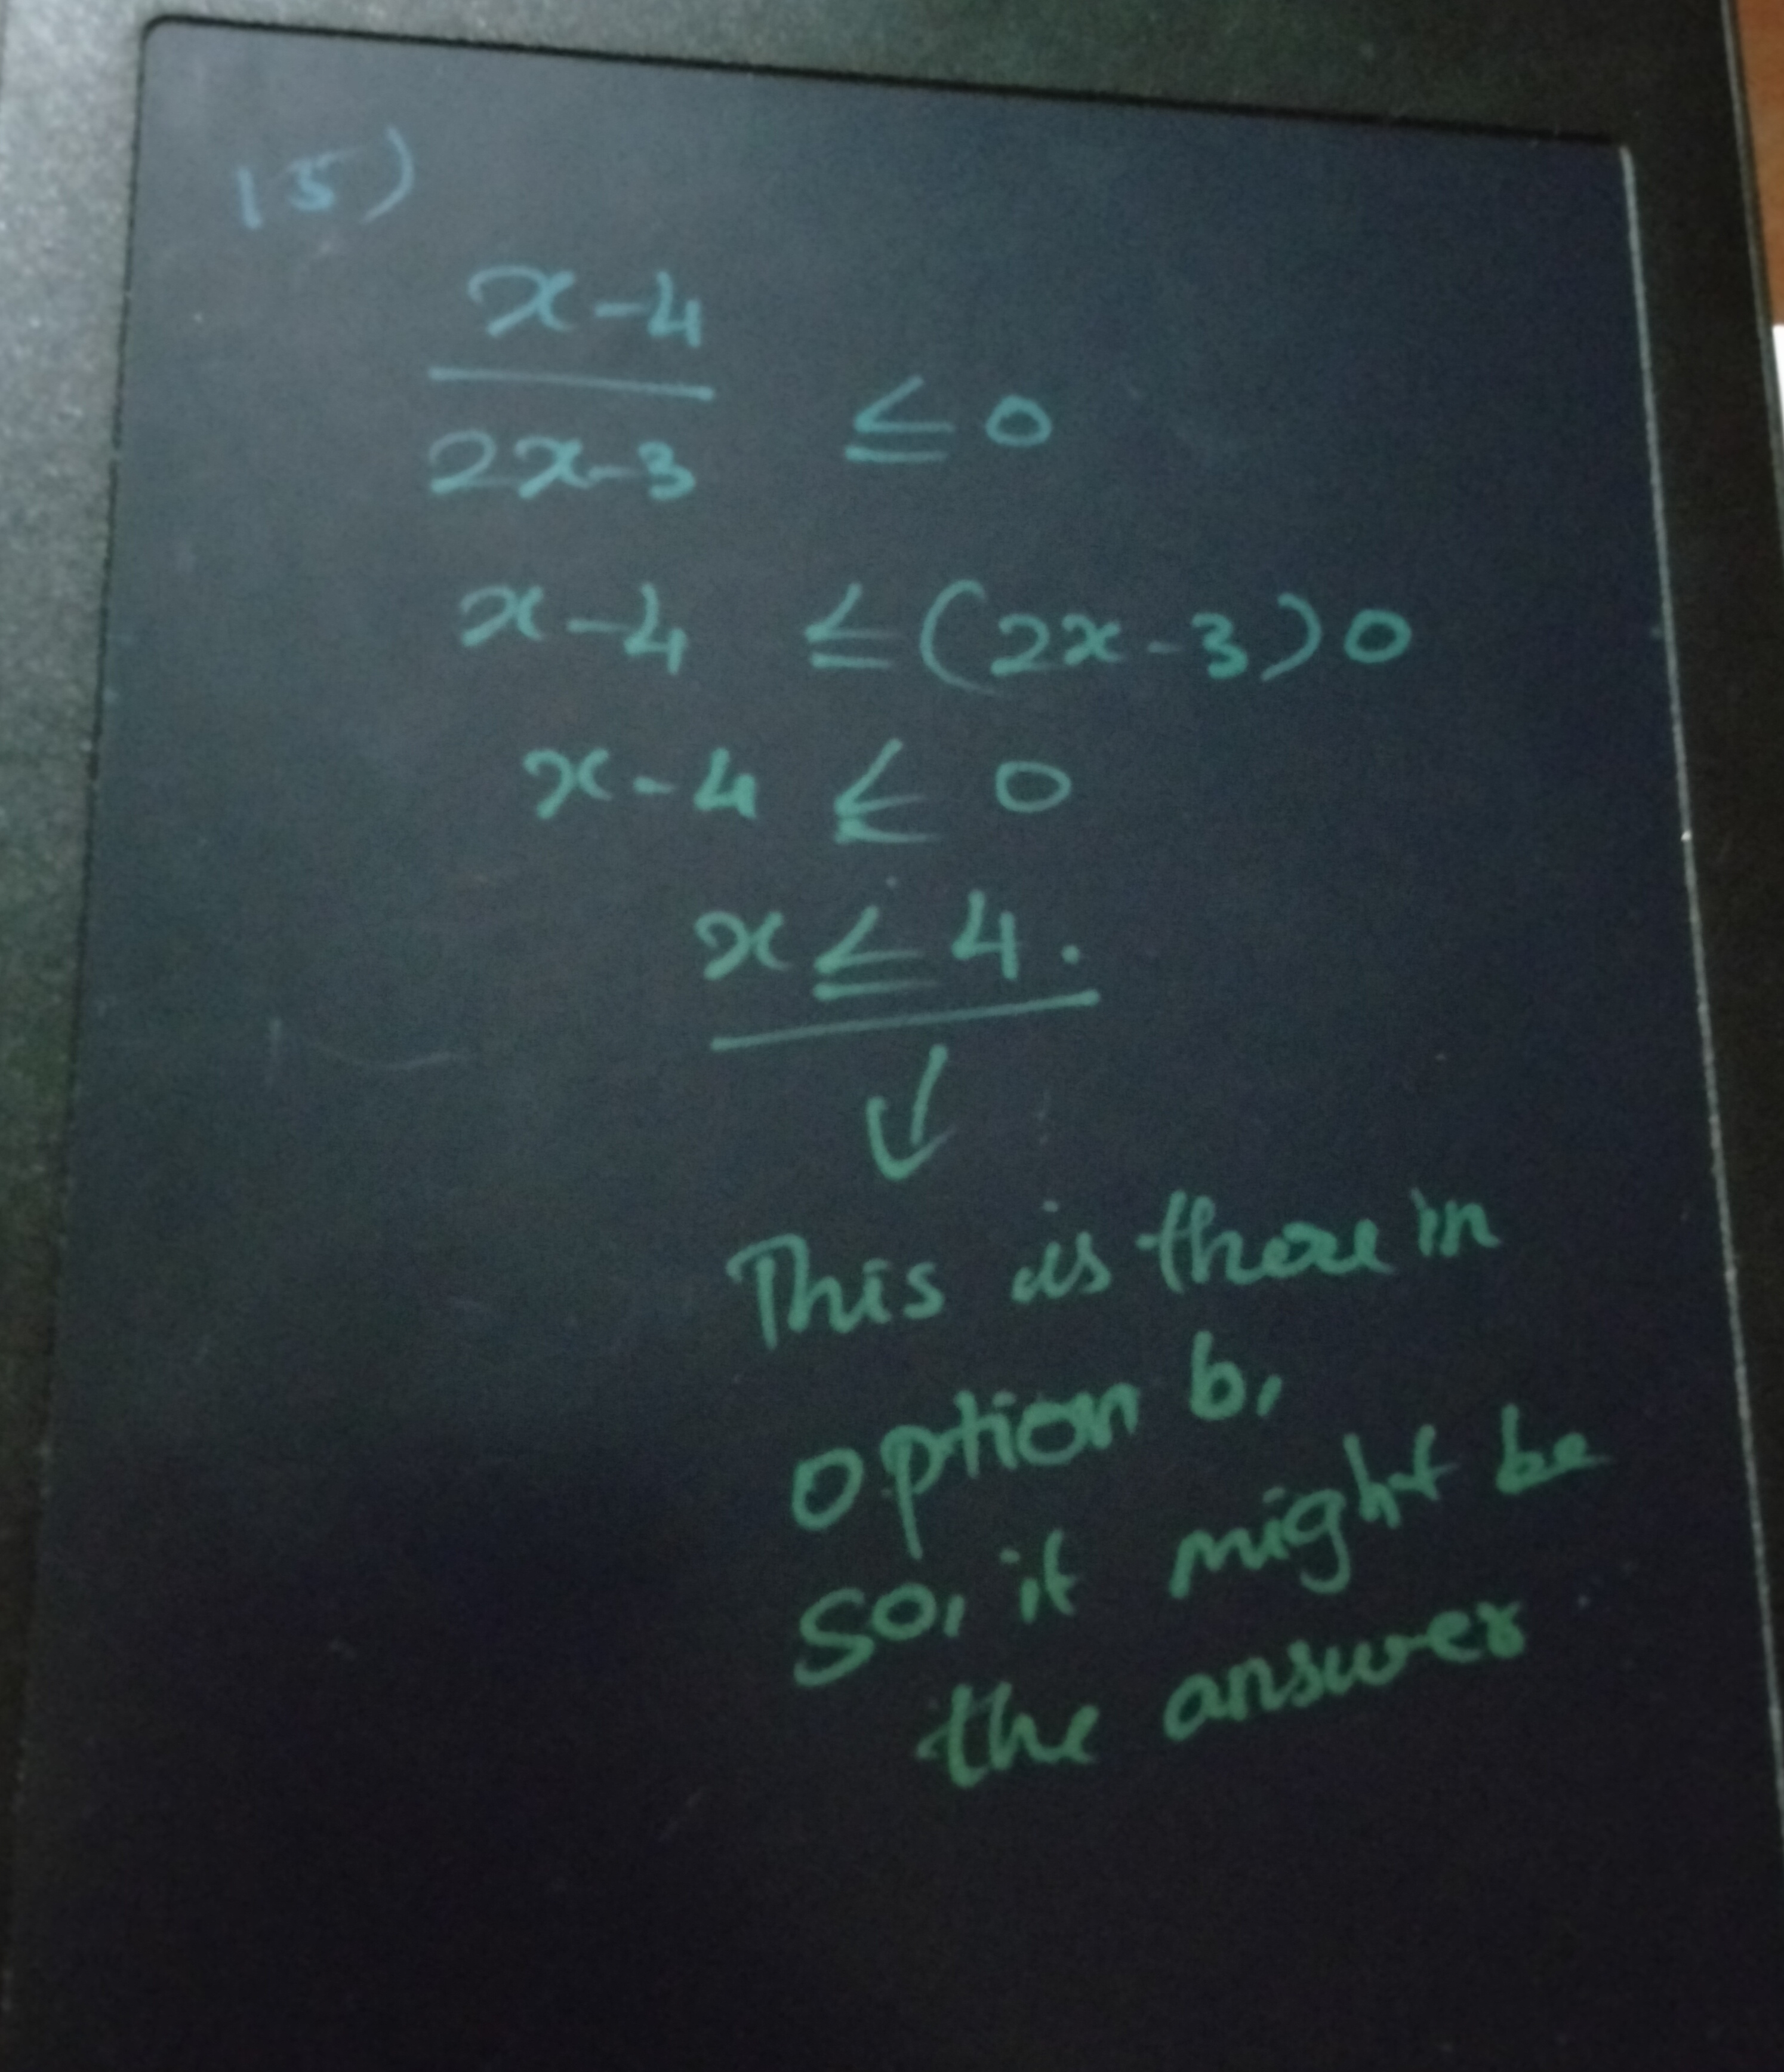 15)
x-4
2x-3 ≤ 0
x-4 ≤ (2x-3)0
x-4 ≤ 0
x ≤ 4.
This is there in
option b,
So, it might be
the answer